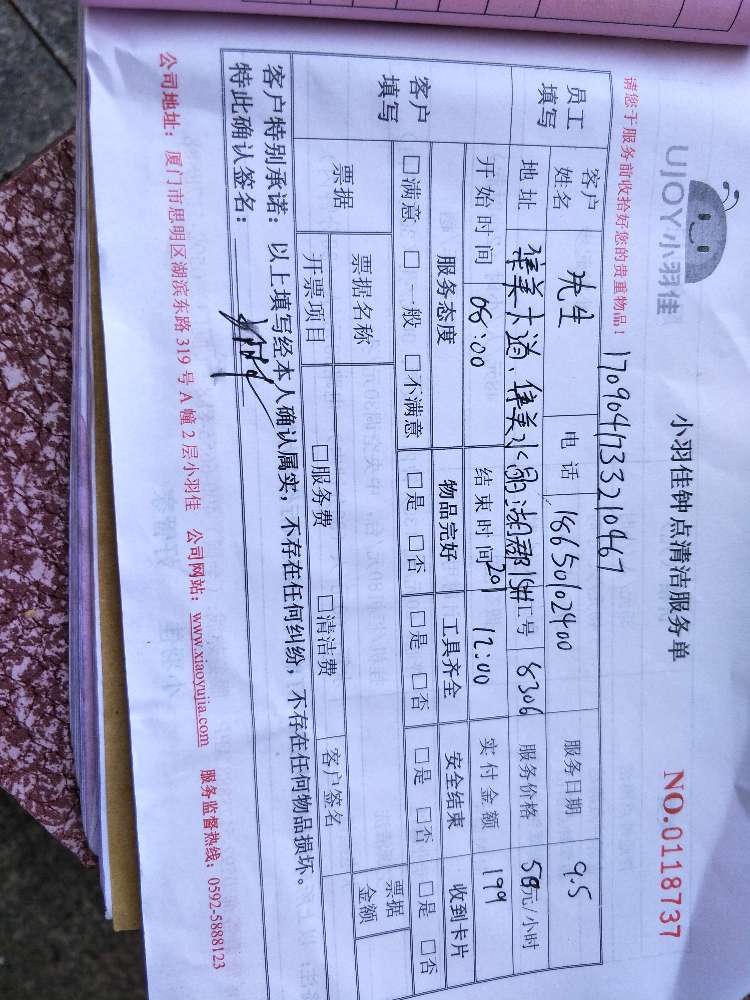 UJOY小羽佳
小羽佳钟点清洁服务单
NO.0118737
请您于服务前收拾好您的贵重物品!
170904733210467
员工填写
客户姓名 先生 电话 18650102400 服务日期 9.5
地址 集美大道、集美水晶湖郡1S# 201 工号 8306 服务价格 50元/小时
开始时间 08:00 结束时间 12:00 实付金额 199
客户填写
服务态度 物品完好 工具齐全 安全结束 收到卡片
□满意 □一般 □不满意 □是 □否 □是 □否 □是 □否 □是 □否
票据 票据名称 票据金额
开票项目 □服务费 □清洁费 客户签名
客户特别承诺:以上填写经本人确认属实,不存在任何纠纷,不存在任何物品损坏。
特此确认签名:
公司地址:厦门市思明区湖滨东路 319 号 A 幢 2 层小羽佳 公司网站:www.xiaoyujia.com 服务监督热线:0592-5888123